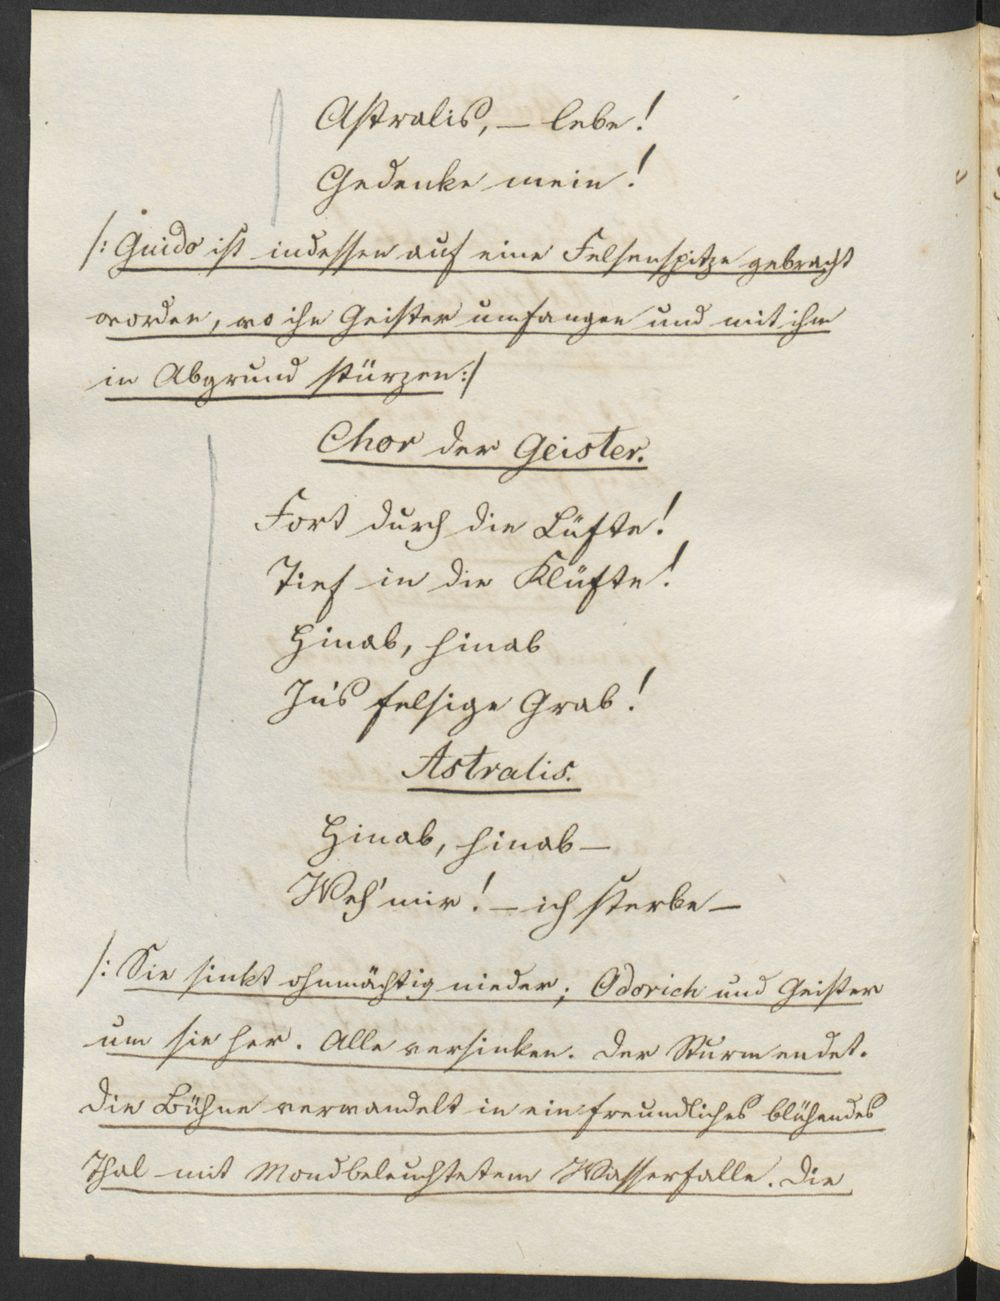 Astralis, — lebe!
Gedenke mein!
/: Guido ist indessen auf eine Felsenspitze gebracht
worden, wo ihn Geister umfangen und mit ihm
in Abgrund stürzen :/
Chor der Geister.
Fort durch die Lüfte!
Tief in die Klüfte!
Hinab, hinab
In's felsige Grab!
Astralis.
Hinab, hinab —
Weh' mir! — ich sterbe —
/: Sie sinkt ohnmächtig nieder; Odorich und Geister
um sie her. Alle versinken. Der Sturm endet.
Die Bühne verwandelt in ein freundliches blühendes
Thal mit Mondbeleuchtetem Wasserfalle. Die